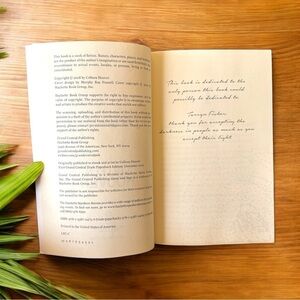 This book is a work of fiction. Names, characters, places, and incidents
are the product of the author's imagination or are used fictitiously. Any
resemblance to actual events, locales, or persons, living or dead, is
coincidental.
Copyright © 2018 by Colleen Hoover
Cover design by Murphy Rae Hopsell. Cover copyright ©
Hachette Book Group, Inc.
Hachette Book Group supports the right to free expression and the
value of copyright. The purpose of copyright is to encourage writers
and artists to produce the creative works that enrich our culture.
The scanning, uploading, and distribution of this book without
permission is a theft of the author's intellectual property. If you would like
permission to use material from the book (other than for review
purposes), please contact permissions@hbgusa.com. Thank you for your
support of the author's rights.
Grand Central Publishing
Hachette Book Group
1290 Avenue of the Americas, New York, NY 10104
grandcentralpublishing.com
Originally published in ebook and print by Colleen Hoover
First Grand Central Trade Paperback Edition:
Grand Central Publishing is a division of Hachette Book Group,
Inc. The Grand Central Publishing name and logo is a trademark of
Hachette Book Group, Inc.
The publisher is not responsible for websites (or their content) that are
not owned by the publisher.
The Hachette Speakers Bureau provides a wide range of authors for speaking
events. To find out more, go to www.hachettespeakersbureau.com
Printed in the United States of America
LSC-C
This book is dedicated to the
only person this book could
possibly be dedicated to.
Tarryn Fisher,
thank you for accepting the
darkness in people as much as you
accept their light.